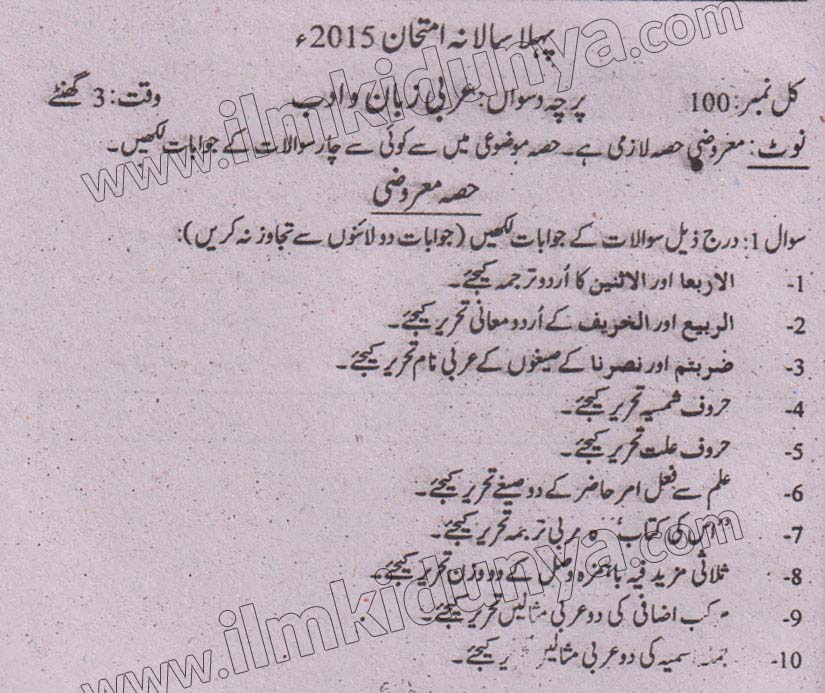 پہلا سالانہ امتحان 2015ء
کل نمبر: 100 پرچہ دسواں: عربی زبان و ادب وقت: 3 گھنٹے
نوٹ: معروضی حصہ لازمی ہے۔ حصہ موضوعی میں سے کوئی سے چار سوالات کے جوابات لکھیں۔
حصہ معروضی
سوال 1: درج ذیل سوالات کے جوابات لکھیں (جوابات دو لائنوں سے تجاوز نہ کریں):
1- الاربعا اور الاثنین کا اُردو ترجمہ کیجئے۔
2- الربیع اور الخریف کے اُردو معانی تحریر کیجئے۔
3- ضربتم اور نصرنا کے صیغوں کے عربی نام تحریر کیجئے۔
4- حروف شمسیہ تحریر کیجئے۔
5- حروف علت تحریر کیجئے۔
6- علم سے فعل امر حاضر کے دو صیغے تحریر کیجئے۔
7- کی کتاب ترجمہ تحریر کیجئے۔
8- ثلاثی مزید فیہ باہمزہ وصل کے دو وزن تحریر کیجئے۔
9- مرکب اضافی کی دو عربی مثالیں تحریر کیجئے۔
10- جملہ اسمیہ کی دو عربی مثالیں تحریر کیجئے۔
www.ilmkidunya.com
www.ilmkidunya.com